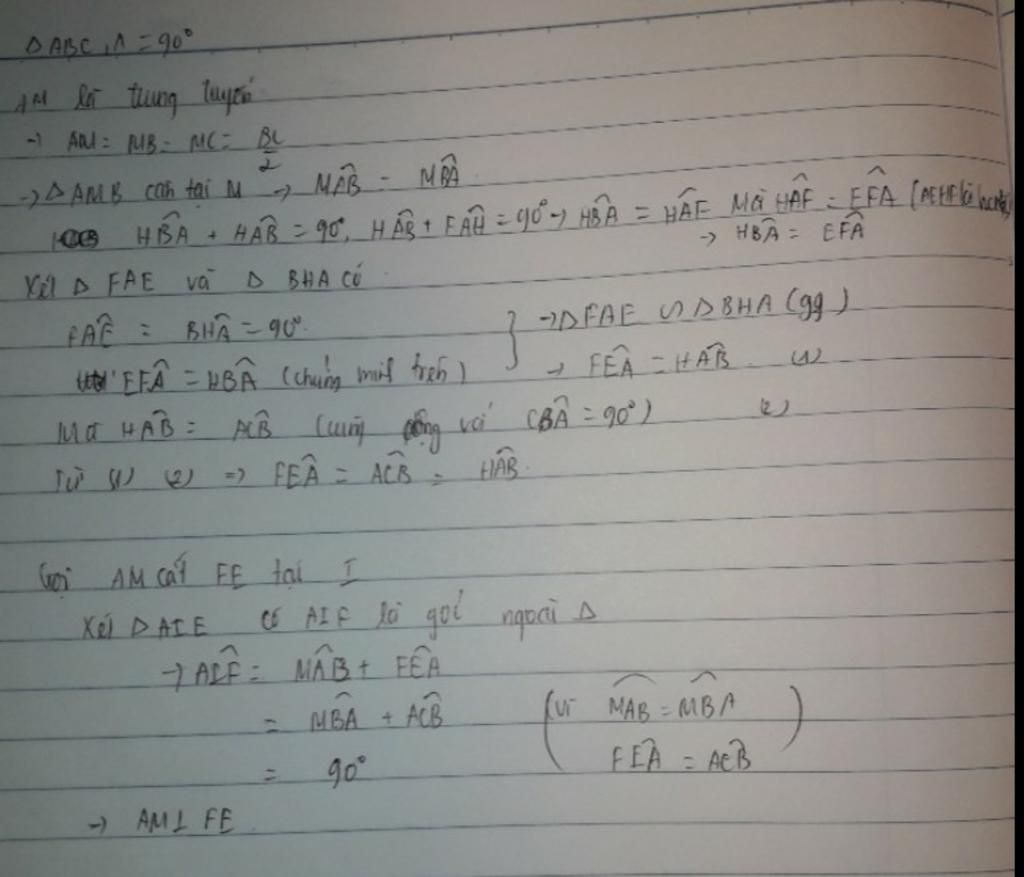 Δ ABC, A = 90°
AM là trung tuyến
→ AM = MB = MC = BC/2
→ Δ AMB cân tại M → MÂB = MB̂A
HB̂A + HÂB = 90°, HÂB + FÂH = 90° → HB̂A = HÂF Mà HÂF = EF̂A (AEHF là
→ HB̂A = EF̂A
Xét Δ FAE và Δ BHA có
FÂE = BĤA = 90°
EF̂A = HB̂A (chứng minh trên)
} → Δ FAE ∽ Δ BHA (gg)
→ FÊA = HÂB (1)
Mà HÂB = AĈB (cùng cộng với CB̂A = 90°) (2)
Từ (1) (2) => FÊA = AĈB = HÂB
Gọi AM cắt FE tại I
Xét Δ AIE có AIF là góc ngoài Δ
→ AÎF = MÂB + FÊA
= MB̂A + AĈB (vì MÂB = MB̂A
= 90° FÊA = AĈB)
→ AM ⊥ FE